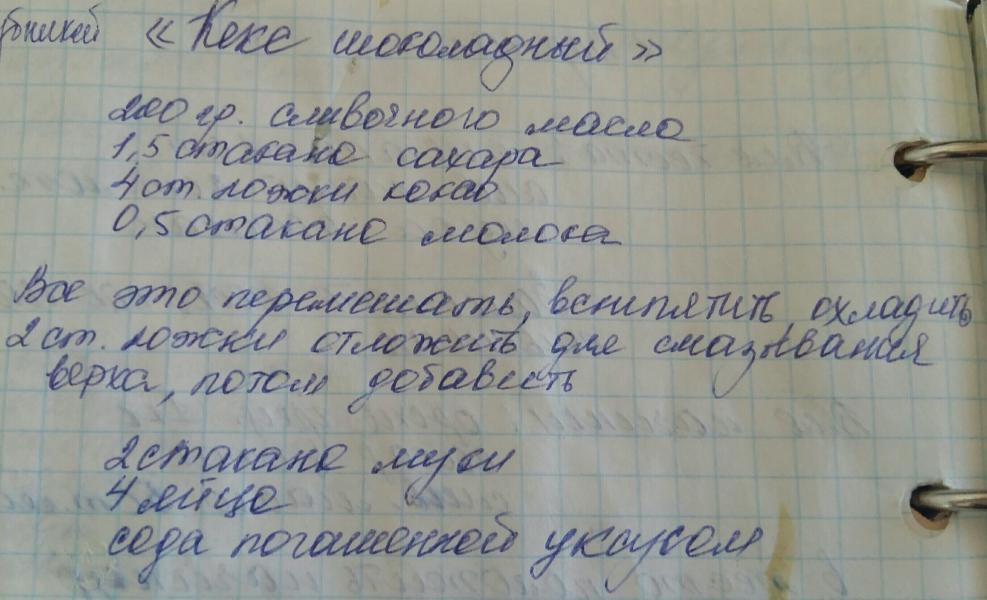 «Кекс шоколадный»
200 гр. сливочного масла
1,5 стакана сахара
4 ст. ложки какао
0,5 стакана молока
Все это перемешать, вскипятить, охладить
2 ст. ложки отложить для смазывания
верха, потом добавить
2 стакана муки
4 яйца
сода погашенной уксусом